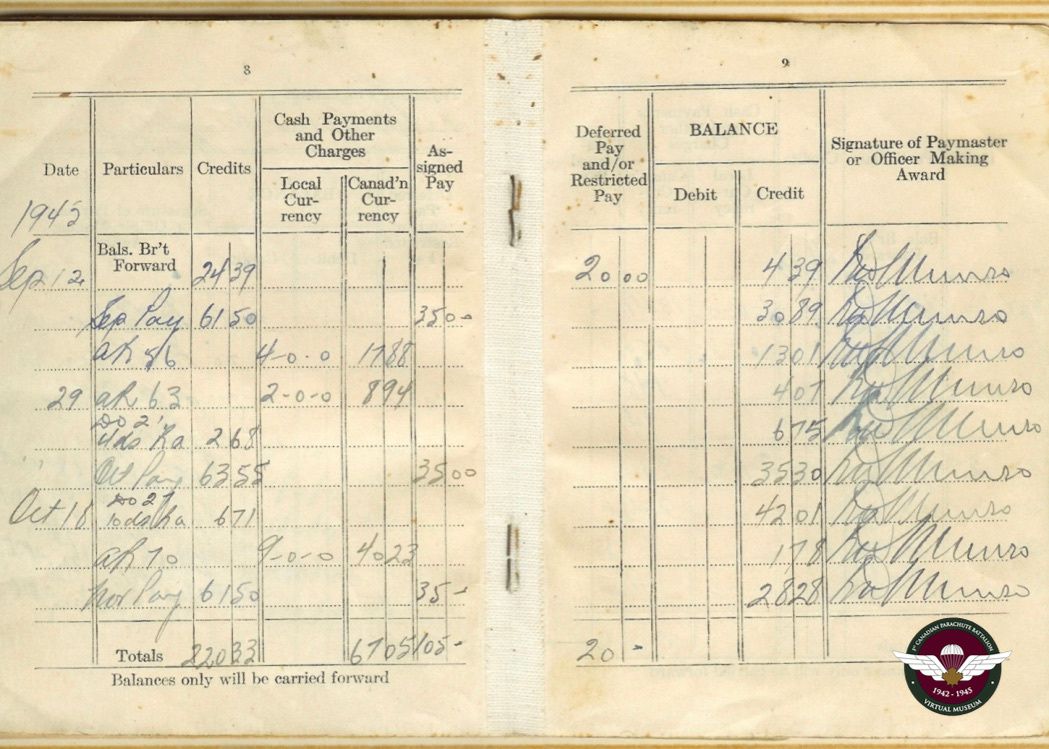 8
Date Particulars Credits Cash Payments and Other Charges Local Cur-rency Canad'n Cur-rency As-signed Pay
1945
Sep 12 Bals. Br't Forward 24 39
Sep Pay 61 50 35 0-
aR 56 4-0-0 17 88
29 aR 63 2-0-0 8 94
DO 2
4ds Ra 2 68
Oct Pay 63 55 35 00
DO 27
Oct 18 10ds Ra 6 71
aR 70 9-0-0 40 23
Nov Pay 61 50 35 -
Totals 220 33 67 05 105 -
Balances only will be carried forward
9
Deferred Pay and/or Restricted Pay BALANCE Debit Credit Signature of Paymaster or Officer Making Award
20 00 4 39 Munro
30 89 Munro
13 01 Munro
4 07 Munro
6 75 Munro
35 30 Munro
42 01 Munro
1 78 Munro
28 28 Munro
20 -
1st CANADIAN PARACHUTE BATTALION
1942 - 1945
VIRTUAL MUSEUM